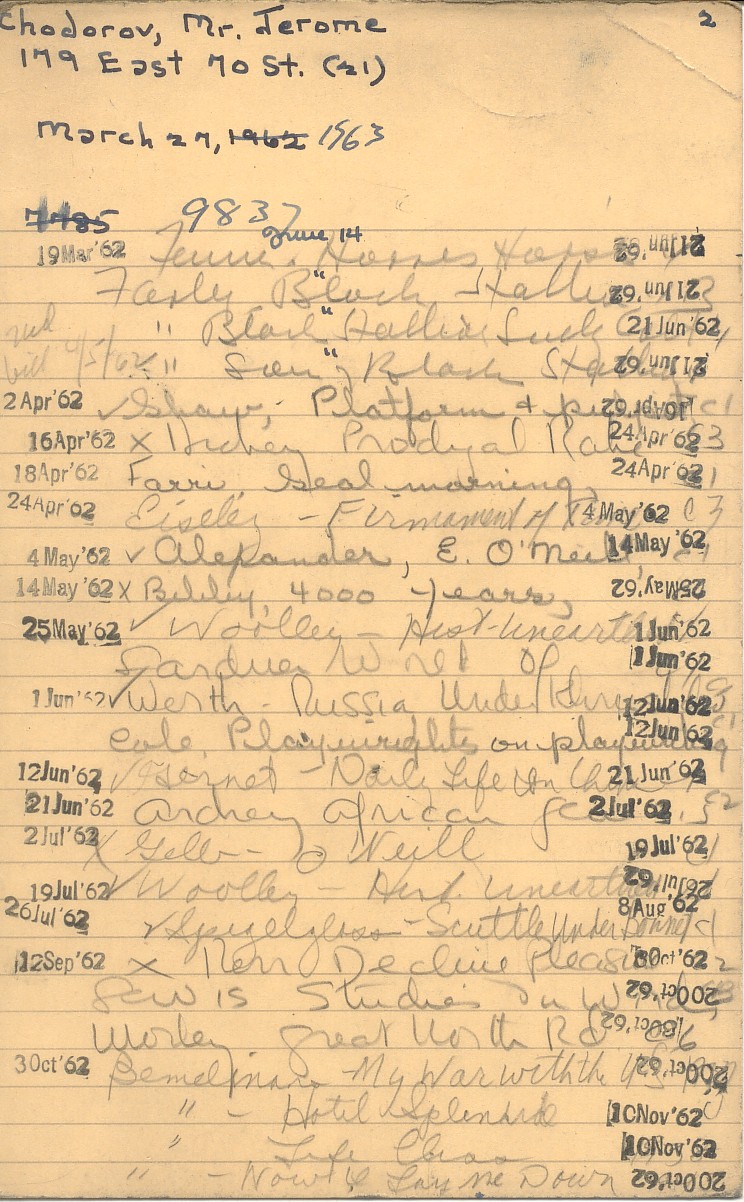 2
Chodorov, Mr. Jerome
179 East 70 St. (21)
March 27, 1962 1963
7785 9837
June 14
19Mar'62 Horses 21Jun'62
Farley Black Stallion 21Jun'62
" Black Stallion 21Jun'62
bill 4/5/62 ✓ " Son of Black 21Jun'62
2Apr'62 ✓ Shaw, Platform + 16Apr'62 c1
16Apr'62 X Prodigal 24Apr'62 c3
18Apr'62 Farre Seal morning, 24Apr'62 1
24Apr'62 Eiseley - Firmament of 4May'62 c3
4May'62 ✓ Alexander, E. O'Neill, 14May'62
14May'62 X Bibby, 4000 years, 25May'62
25May'62 ✓ Woolley - Hist. Unearthed 1Jun'62
Gardner World of 1Jun'62
1Jun'62 ✓ Werth - Russia Under 12Jun'62
Cole, Playwrights on playwriting 12Jun'62
12Jun'62 ✓ Gernet - Daily Life in China 21Jun'62
21Jun'62 Ardrey African Genesis 2Jul'62
2Jul'62 X Gelb - O'Neill 19Jul'62
19Jul'62 ✓ Woolley - Hist. Unearthed 26Jul'62
26Jul'62 ✓ Spigelglass - Scuttle Under Bonnet 8Aug'62
12Sep'62 X Kerr Decline Pleasure 3Oct'62
Lewis Studies in 20Oct'62
Morley Great North Rd 30ct'62
3Oct'62 Bemelmans - My War with the U.S. 20Oct'62
" - Hotel Splendide 10Nov'62
" Life Class 10Nov'62
" - Now I Lay Me Down 20Oct'62